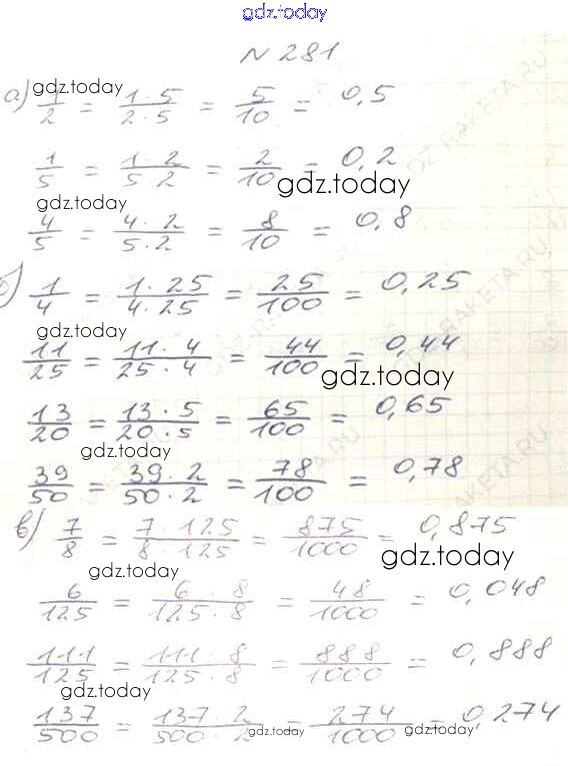 gdz.today
N 281
gdz.today
а) 1/2 = 1·5/2·5 = 5/10 = 0,5
1/5 = 1·2/5·2 = 2/10 = 0,2
gdz.today
gdz.today
4/5 = 4·2/5·2 = 8/10 = 0,8
б) 1/4 = 1·25/4·25 = 25/100 = 0,25
gdz.today
11/25 = 11·4/25·4 = 44/100 = 0,44
gdz.today
13/20 = 13·5/20·5 = 65/100 = 0,65
gdz.today
39/50 = 39·2/50·2 = 78/100 = 0,78
в) 7/8 = 7·125/8·125 = 875/1000 = 0,875
gdz.today
gdz.today
6/125 = 6·8/125·8 = 48/1000 = 0,048
111/125 = 111·8/125·8 = 888/1000 = 0,888
gdz.today
137/500 = 137·2/500·2 = 274/1000 = 0,274
gdz.today